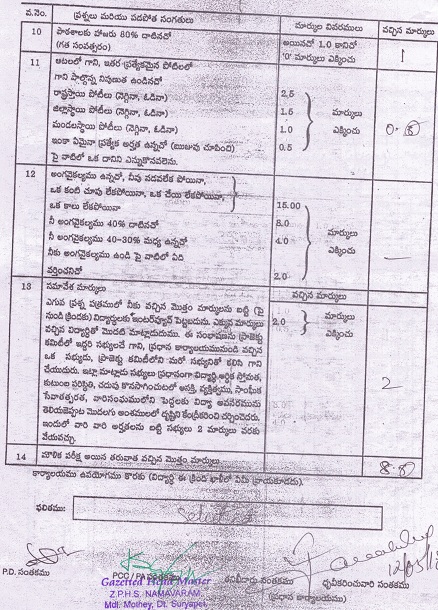 వ.నెం. ప్రశ్నలు మరియు పదపోత సంగతులు మార్కుల వివరములు వచ్చిన మార్కులు
10 పాఠశాలకు హాజరు 80% దాటినదో అయినచో 1.0 కానిచో 1
(గత సంవత్సరం) '0' మార్కులు ఎక్కించు
11 ఆటలలో గాని, ఇతర ప్రత్యేకమైన పోటీలలో
గాని పాల్గొన్న నిపుణుత ఉండినదో
రాష్ట్రస్థాయి పోటీలు (నెగ్గినా, ఓడినా) 2.5
జిల్లాస్థాయి పోటీలు (నెగ్గినా, ఓడినా) 1.5 మార్కులు
మండలస్థాయి పోటీలు (నెగ్గినా, ఓడినా) 1.0 ఎక్కించు
ఇంకా ఏమైనా ప్రత్యేక అర్హత ఉన్నచో (ఋజువు చూపించి) 0.5
పై వాటిలో ఒక దానిని ఎన్నుకొనవలెను.
12 అంగవైకల్యము ఉన్నచో, నీవు నడవలేక పోయినా,
ఒక కంటి చూపు లేకపోయినా, ఒక చేయి లేకపోయినా,
ఒక కాలు లేకపోయినా 15.00
నీ అంగవైకల్యము 40% దాటినచో 8.0 మార్కులు
నీ అంగవైకల్యము 40-30% మధ్య ఉన్నచో 4.0 ఎక్కించు
నీకు అంగవైకల్యము ఉండి పై వాటిలో ఏది
వర్తించనిచో 2.0
13 సమావేశ మార్కులు వచ్చిన మార్కులు
ఎగువ ప్రశ్న పత్రములో నీకు వచ్చిన మొత్తం మార్కులను బట్టి (పై 2.0 మార్కులు
నుండి క్రిందకు) విద్యార్థులకు ఇంటర్వ్యూన్ పెట్టబడును. ఎక్కువ మార్కులు ఎక్కించు
వచ్చిన విద్యార్థితో మొదటి మాట్లాడుదుము. ఈ సంభాషణను ప్రాజెక్టు
కమిటీలో ఇద్దరి సభ్యులచే గాని, ప్రధాన కార్యాలయమునుండి వచ్చిన
ఒక సభ్యుడు, ప్రాజెక్టు కమిటీలోని మరో సభ్యునితో కలిసి గాని
చేయుదురు. ఇట్లా మాట్లాడు సభ్యులు ప్రధానంగా విద్యార్థి ఆర్థిక స్తోమత, 2
కుటుంబ పరిస్థితి, చదువు కొనసాగించుటలో ఆసక్తి, వ్యక్తిత్వము, సాంఘిక
సేవాతత్పరత, వారిసంఘములోని పెద్దలకు విద్యా అవసరమును
తెలియజెప్పుట మొదలగు అంశములలో దృష్టిని కేంద్రీకరించి చర్చించెదరు.
ఇందులో వారి వారి అర్హతలను బట్టి సభ్యులు 2 మార్కులు వరకు
వేయవచ్చు.
14 మౌలిక పరీక్ష అయిన తరువాత వచ్చిన మొత్తం మార్కులు.
కార్యాలయము ఉపయోగము కొరకు (విద్యార్థి ఈ క్రింది ఖాళీలో ఏమీ వ్రాయకూడదు).
ఫలితము:
P.D. సంతకము
Gazetted Head Master
Z.P.H.S. NAMAVARAM,
Mdl. Mothey, Dt. Suryapet.
ధృవీకరించువారి సంతకము
(ప్రధాన కార్యాలయము)